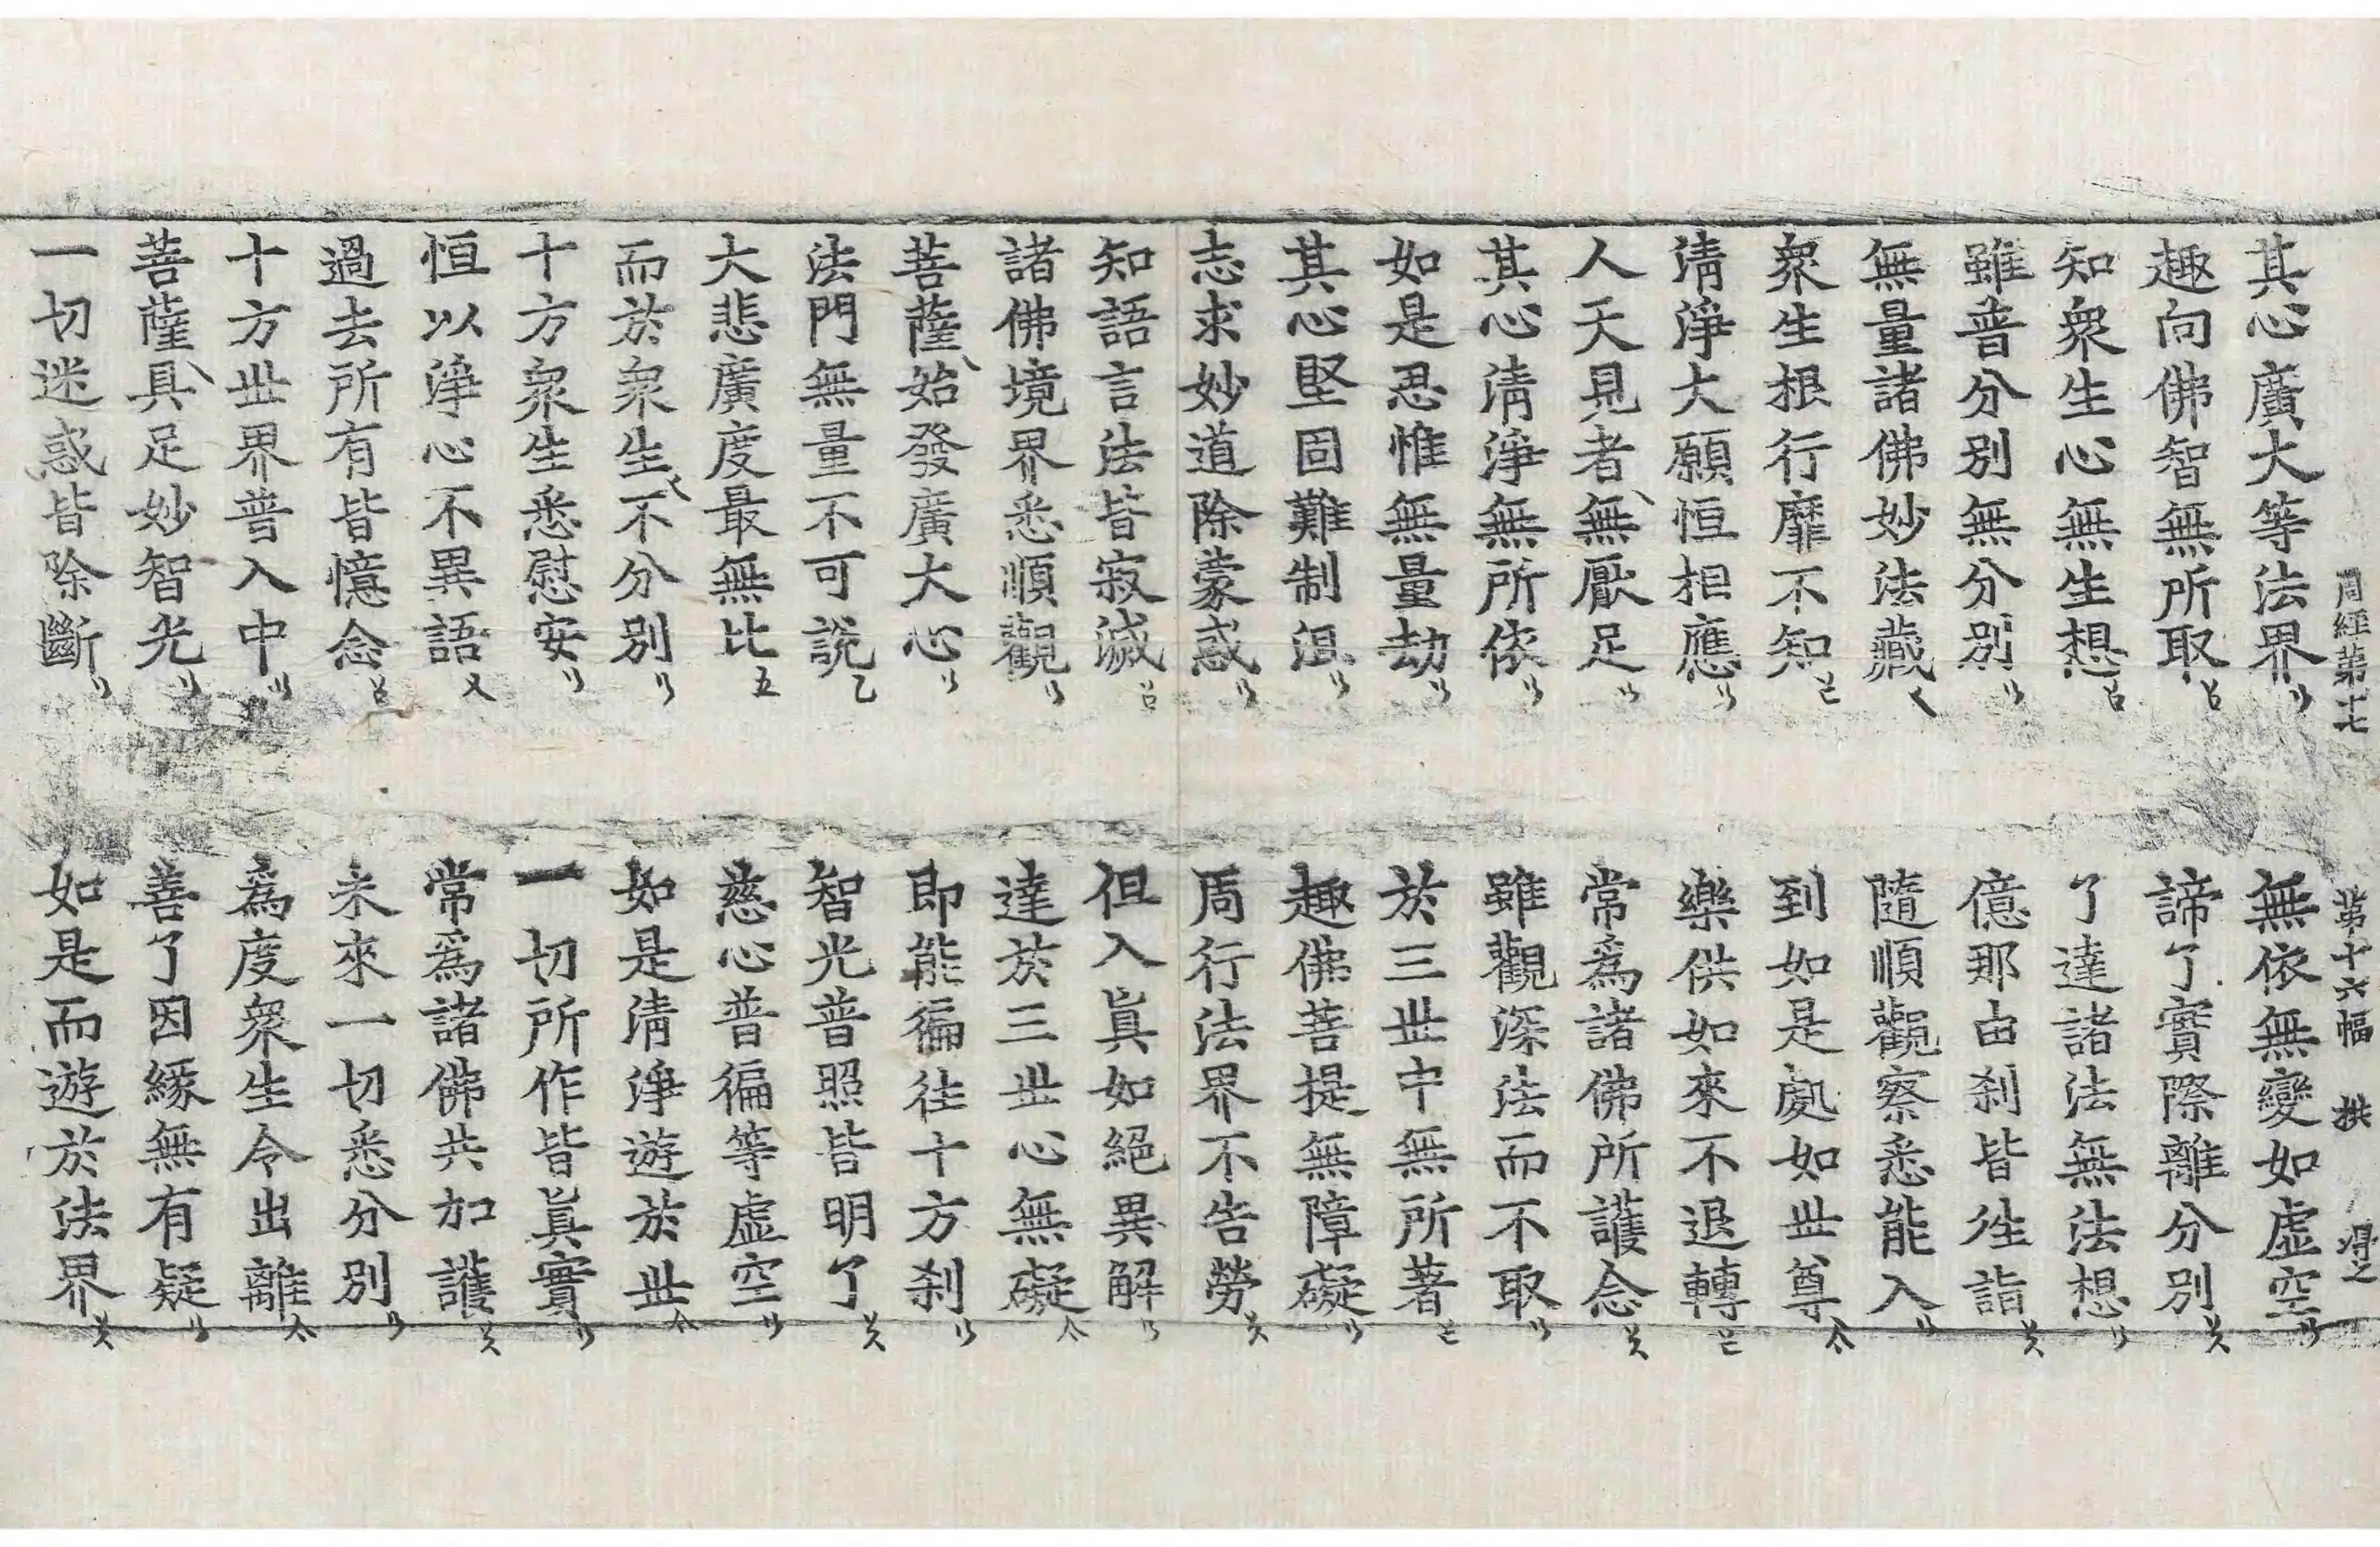 周經第十七 第十六幅 拱 得之
其心廣大等法界 無依無變如虛空
趣向佛智無所取 諦了實際離分別
知衆生心無生想 了達諸法無法想
雖普分別無分別 億那由刹皆往詣
無量諸佛妙法藏 隨順觀察悉能入
衆生根行靡不知 到如是處如世尊
清淨大願恒相應 樂供如來不退轉
人天見者無厭足 常爲諸佛所護念
其心清淨無所依 雖觀深法而不取
如是思惟無量劫 於三世中無所著
其心堅固難制沮 趣佛菩提無障礙
志求妙道除蒙惑 周行法界不告勞
知語言法皆寂滅 但入眞如絕異解
諸佛境界悉順觀 達於三世心無礙
菩薩始發廣大心 即能徧往十方刹
法門無量不可說 智光普照皆明了
大悲廣度最無比 慈心普徧等虛空
而於衆生不分別 如是清淨遊於世
十方衆生悉慰安 一切所作皆眞實
恒以淨心不異語 常爲諸佛共加護
過去所有皆憶念 未來一切悉分別
十方世界普入中 爲度衆生令出離
菩薩具足妙智光 善了因緣無有疑
一切迷惑皆除斷 如是而遊於法界